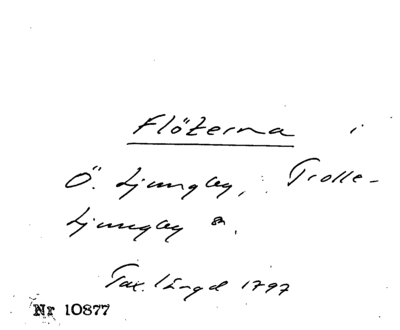 Flöterna i
Ö. Ljungby, Trolle-
Ljungby sn.
Tax.längd 1797
Nr 10877